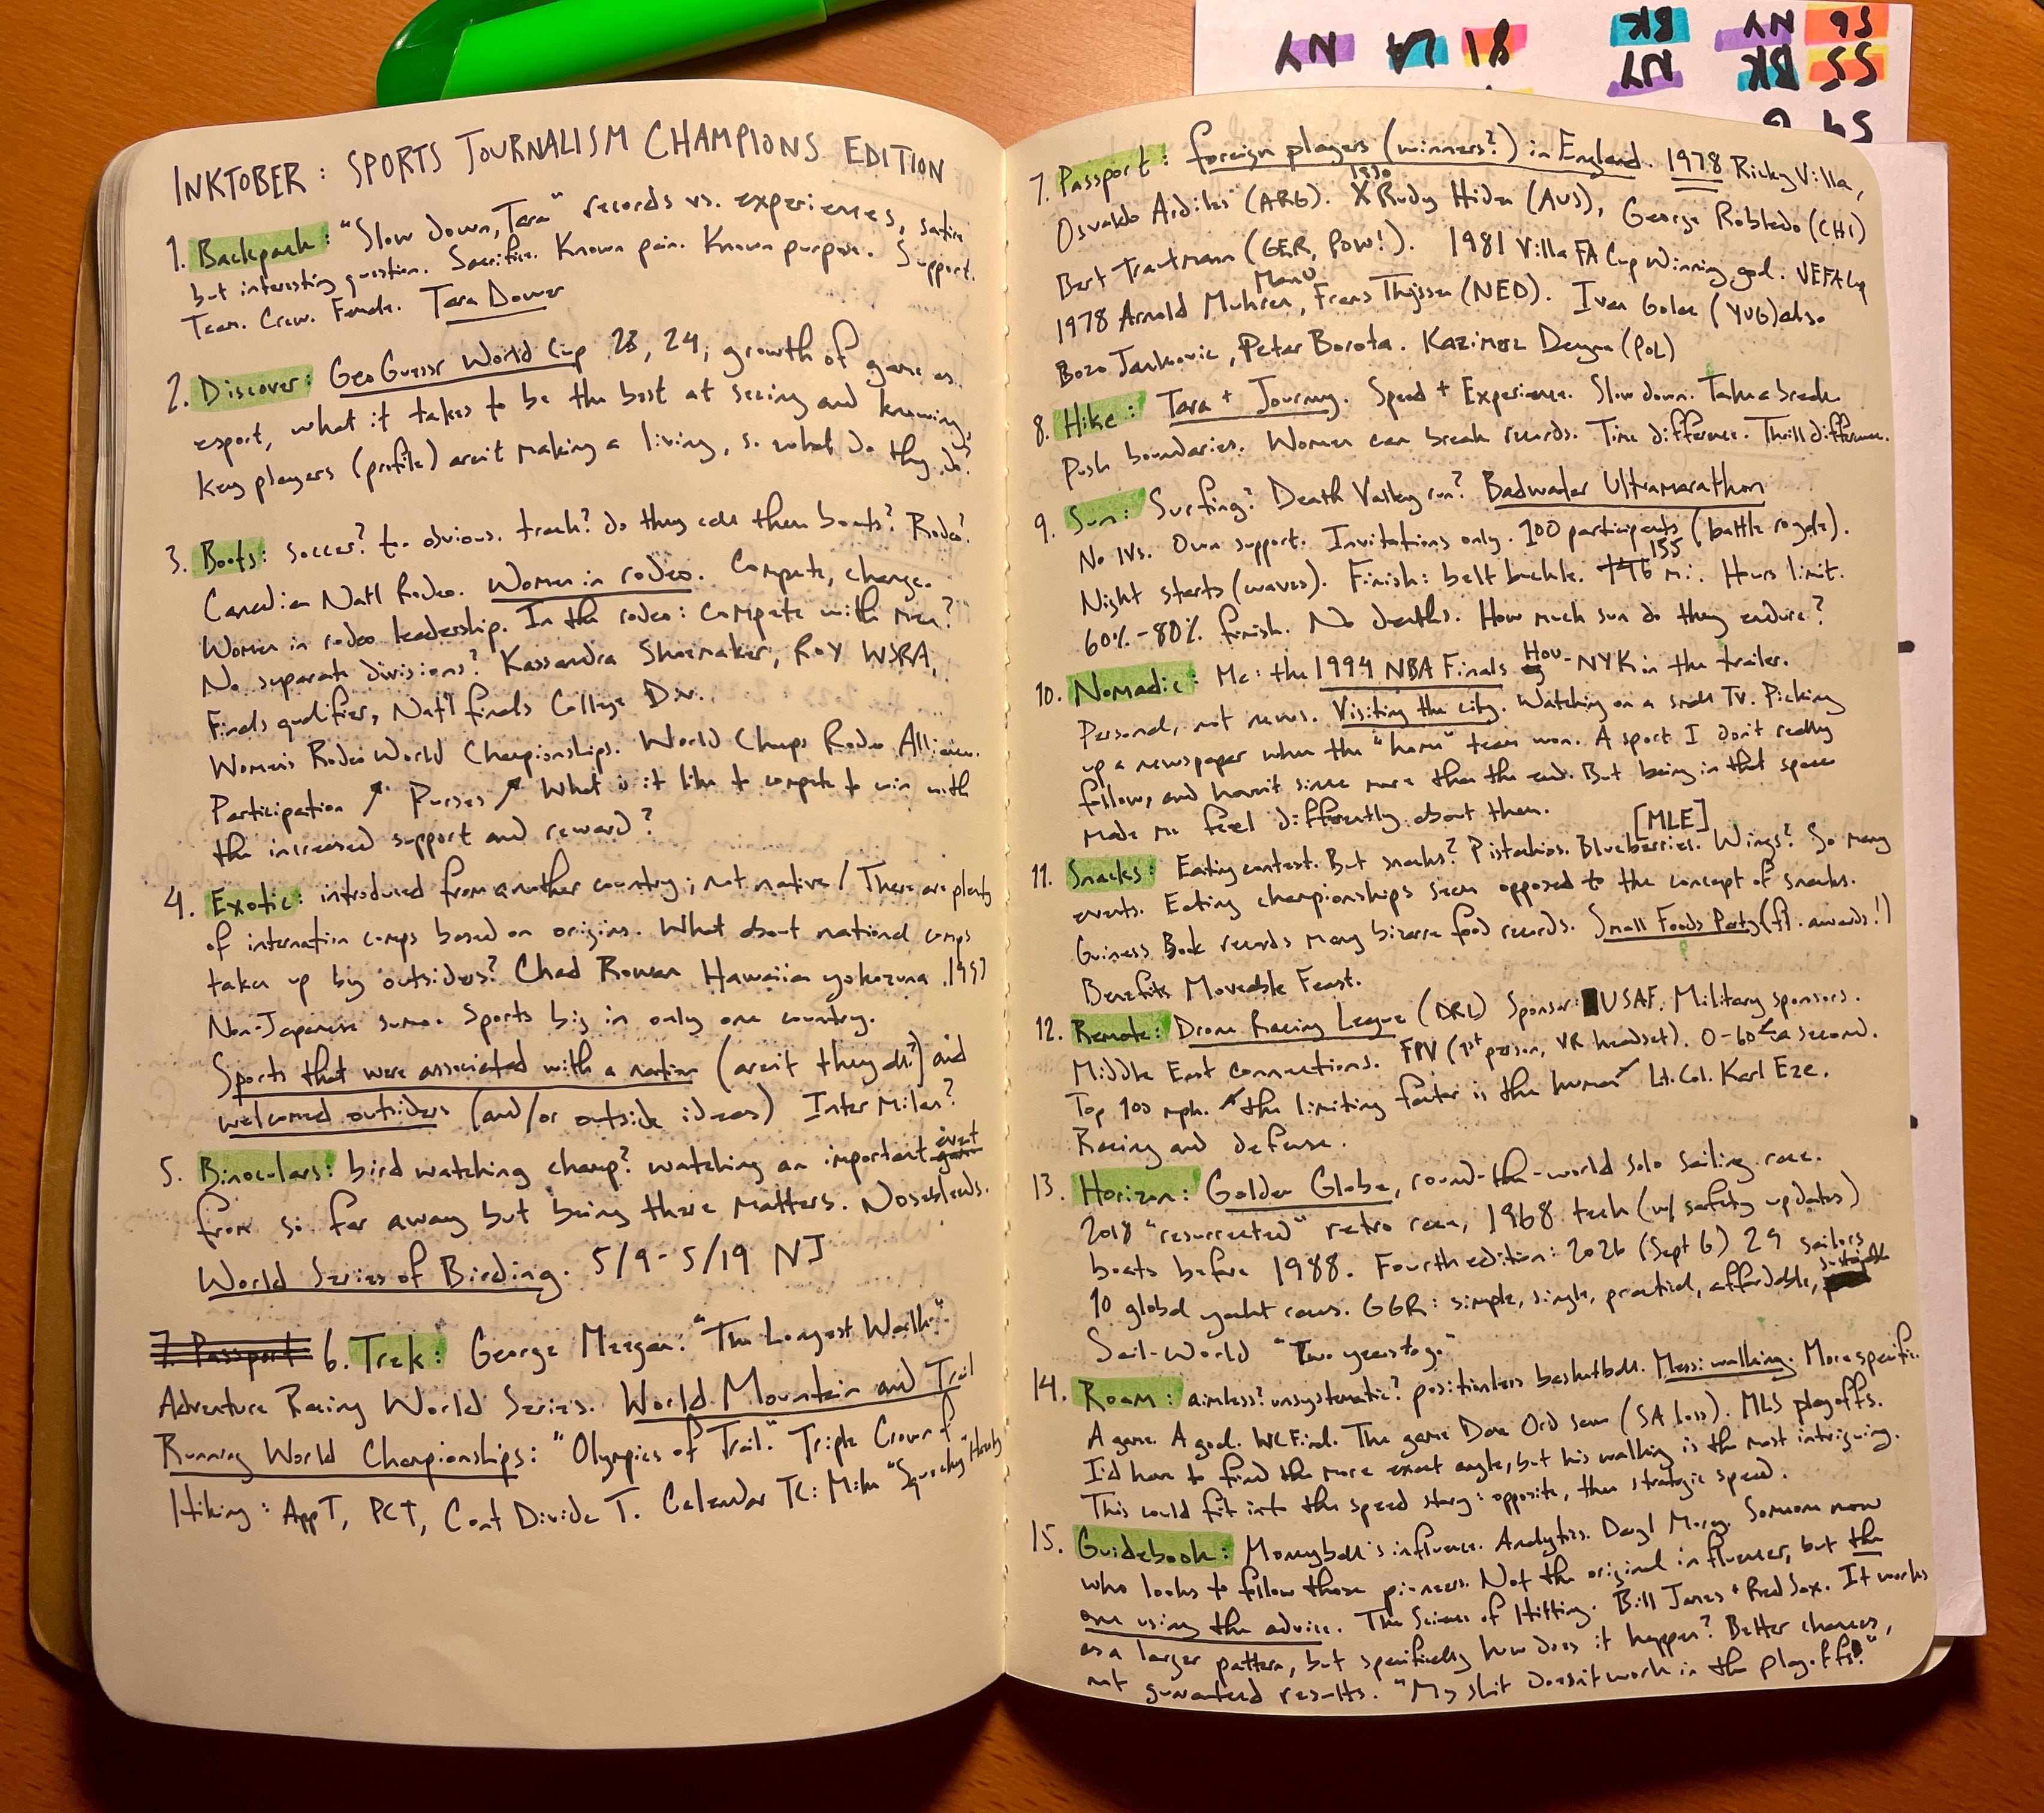 INKTOBER: SPORTS JOURNALISM CHAMPIONS EDITION
1. Backpack: "Slow down, Tara" records vs. experiences, satire
but interesting question. Sacrifice. Known pain. Known purpose. Support.
Team. Crew. Female. Tara Dower
2. Discover: GeoGuessr World Cup 23, 24, growth of game as
esport, what it takes to be the best at seeing and knowing,
key players (profile) aren't making a living, so what do they do?
3. Boots: soccer? too obvious. track? do they call them boats? Rodeo?
Canadian Nat'l Rodeo. Women in rodeo. Compete, change.
Women in rodeo leadership. In the rodeo: compete with men?
No separate divisions? Kassandra Shoemaker, ROY WSRA,
Finals qualifier, Nat'l finals College Div.
Women's Rodeo World Championships. World Champs Rodeo Alliance.
Participation ↗ Purses ↗ What is it like to compete to win with
the increased support and reward?
4. Exotic: introduced from another country; not native / There are plenty
of internation comps based on origins. What about national comps
taken up by outsiders? Chad Rowan Hawaiian yokozuna 1993
Non-Japanese sumo. Sports big in only one country.
Sports that were associated with a nation (aren't they all?) and
welcomed outsiders (and/or outside ideas) Inter Milan?
5. Binoculars: bird watching champ? watching an important game event
from so far away but being there matters. Nosebleeds.
World Series of Birding. 5/9-5/19 NJ
7. Passport 6. Trek: George Meegan: "The Longest Walk".
Adventure Racing World Series. World Mountain and Trail
Running World Championships: "Olympics of Trail." Triple Crown of
Hiking: AppT, PCT, Cont Divide T. Calendar TC: Mike "Squeaky"
7. Passport: foreign players (winners?) in England. 1978 Ricky Villa,
Osvaldo Ardiles (ARG). 1930 X Rudy Hiden (AUS), George Robledo (CHI)
Bert Trautmann (GER, POW!). 1981 Villa FA Cup Winning goal. UEFA Cup
1978 Arnold Muhren, ManU Frans Thijssen (NED). Ivan Golac (YUG) also
Bozo Jankovic, Petar Borota. Kazimierz Deyna (POL)
8. Hike: Tara + Journey. Speed + Experience. Slow down. Take a break
Push boundaries. Women can break records. Time difference. Thrill difference.
9. Sun: Surfing? Death Valley run? Badwater Ultramarathon
No IVs. Own support. Invitations only. 100 participants (battle royale).
Night starts (waves). Finish: belt buckle. 146 155 mi. Hours limit.
60%-80% finish. No deaths. How much sun do they endure?
10. Nomadic: Me: the 1994 NBA Finals HOU-NYK in the trailer.
Personal, not news. Visiting the city. Watching on a small TV. Picking
up a newspaper when the "home" team won. A sport I don't really
follow, and haven't since more than the end. But being in that space
made me feel differently about them.
[MLE]
11. Snacks: Eating contest. But snacks? Pistachios. Blueberries. Wings? So many
events. Eating championships seem opposed to the concept of snacks.
Guiness Book records many bizarre food records. Small Foods Party (ft. awards!)
Benefits Moveable Feast.
12. Remote: Drone Racing League (DRL) Sponsor: USAF. Military sponsors.
Middle East connections. FPV (1st person, VR headset). 0-60 < a second.
Top 100 mph. "the limiting factor is the human" Lt. Col. Karl Eze.
Racing and defense.
13. Horizon: Golden Globe, round-the-world solo sailing race.
2018 "resurrected" retro race, 1968 tech (w/ safety updates)
boats before 1988. Fourth edition: 2026 (Sept 6) 29 sailors
10 global yacht races. GGR: simple, single, practical, affordable,
Sail-World "Two years to go"
14. Roam: aimless? unsystematic? positionless basketball. Messi walking. More specific.
A game. A goal. WC Final. The game Dave Ord saw (SA loss). MLS playoffs.
I'd have to find the more exact angle, but his walking is the most intriguing.
This could fit into the speed story: opposite, then strategic speed.
15. Guidebook: Moneyball's influence. Analytics. Daryl Morey. Someone now
who looks to follow those pioneers. Not the original influencer, but the
one using the advice. The Science of Hitting. Bill James + Red Sox. It works
as a larger pattern, but specifically how does it happen? Better chances,
not guaranteed results. "My shit doesn't work in the playoffs."
56 NY BK
55 BK NY
81 LA NY
54